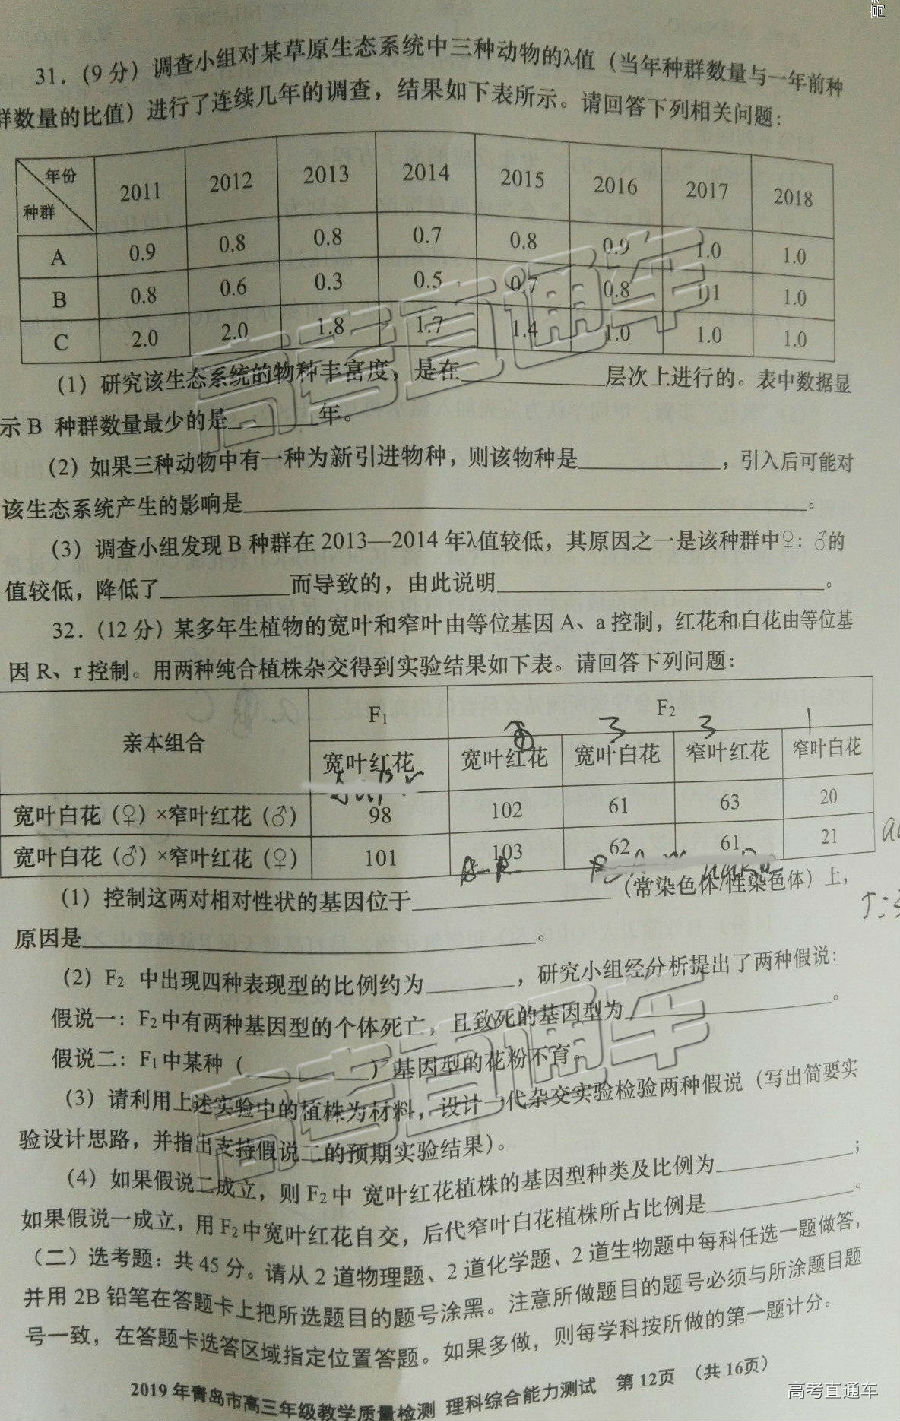 31.（9分）调查小组对某草原生态系统中三种动物的λ值（当年种群数量与一年前种
群数量的比值）进行了连续几年的调查，结果如下表所示。请回答下列相关问题：
年份 种群 2011 2012 2013 2014 2015 2016 2017 2018
A 0.9 0.8 0.8 0.7 0.8 0.9 1.0 1.0
B 0.8 0.6 0.3 0.5 0.7 0.8 1.1 1.0
C 2.0 2.0 1.8 1.7 1.4 1.0 1.0 1.0
（1）研究该生态系统的物种丰富度，是在____________层次上进行的。表中数据显
示B 种群数量最少的是________年。
（2）如果三种动物中有一种为新引进物种，则该物种是____________，引入后可能对
该生态系统产生的影响是____________________________________________。
（3）调查小组发现B种群在2013—2014年λ值较低，其原因之一是该种群中♀：♂的
值较低，降低了___________而导致的，由此说明____________________________。
32.（12分）某多年生植物的宽叶和窄叶由等位基因A、a控制，红花和白花由等位基
因R、r控制。用两种纯合植株杂交得到实验结果如下表。请回答下列问题：
亲本组合 F1 F2
3 3 1
宽叶红花 宽叶红花 宽叶白花 窄叶红花 窄叶白花
宽叶白花（♀）×窄叶红花（♂） 98 102 61 63 20
宽叶白花（♂）×窄叶红花（♀） 101 103 62 61 21
（1）控制这两对相对性状的基因位于________________（常染色体/性染色体）上，
原因是______________________________________。
（2）F2 中出现四种表现型的比例约为________，研究小组经分析提出了两种假说：
假说一：F2中有两种基因型的个体死亡，且致死的基因型为________________。
假说二：F1中某种（___________）基因型的花粉不育。
（3）请利用上述实验中的植株为材料，设计一代杂交实验检验两种假说（写出简要实
验设计思路，并指出支持假说二的预期实验结果）。
（4）如果假说二成立，则F2中 宽叶红花植株的基因型种类及比例为____________；
如果假说一成立，用F2中宽叶红花自交，后代窄叶白花植株所占比例是____________。
（二）选考题：共45分。请从2道物理题、2道化学题、2道生物题中每科任选一题做答，
并用2B铅笔在答题卡上把所选题目的题号涂黑。注意所做题目的题号必须与所涂题目题
号一致，在答题卡选答区域指定位置答题。如果多做，则每学科按所做的第一题计分.
2019年青岛市高三年级教学质量检测 理科综合能力测试 第12页 （共16页）
高考直通车
高考直通车
高考直通车